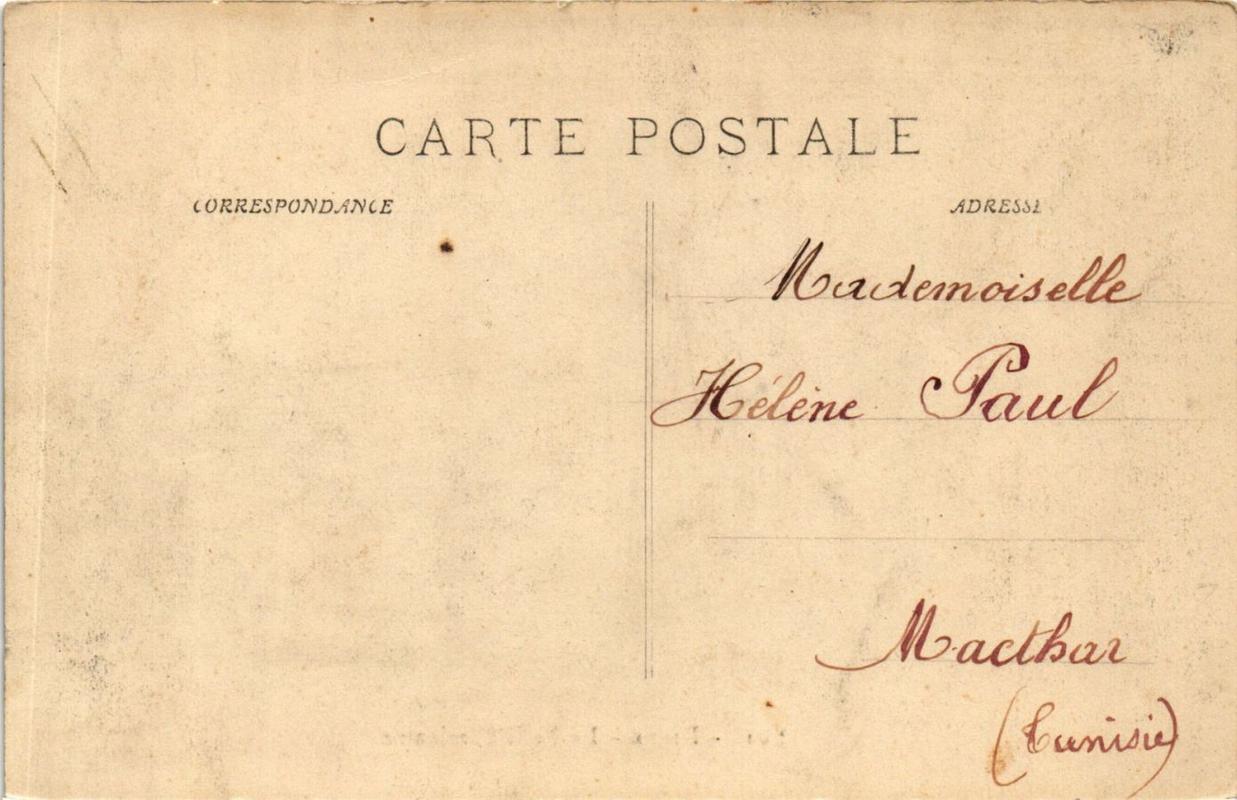 CARTE POSTALE
CORRESPONDANCE
ADRESSE
Mademoiselle
Hélène Paul
Macthar
(Tunisie)